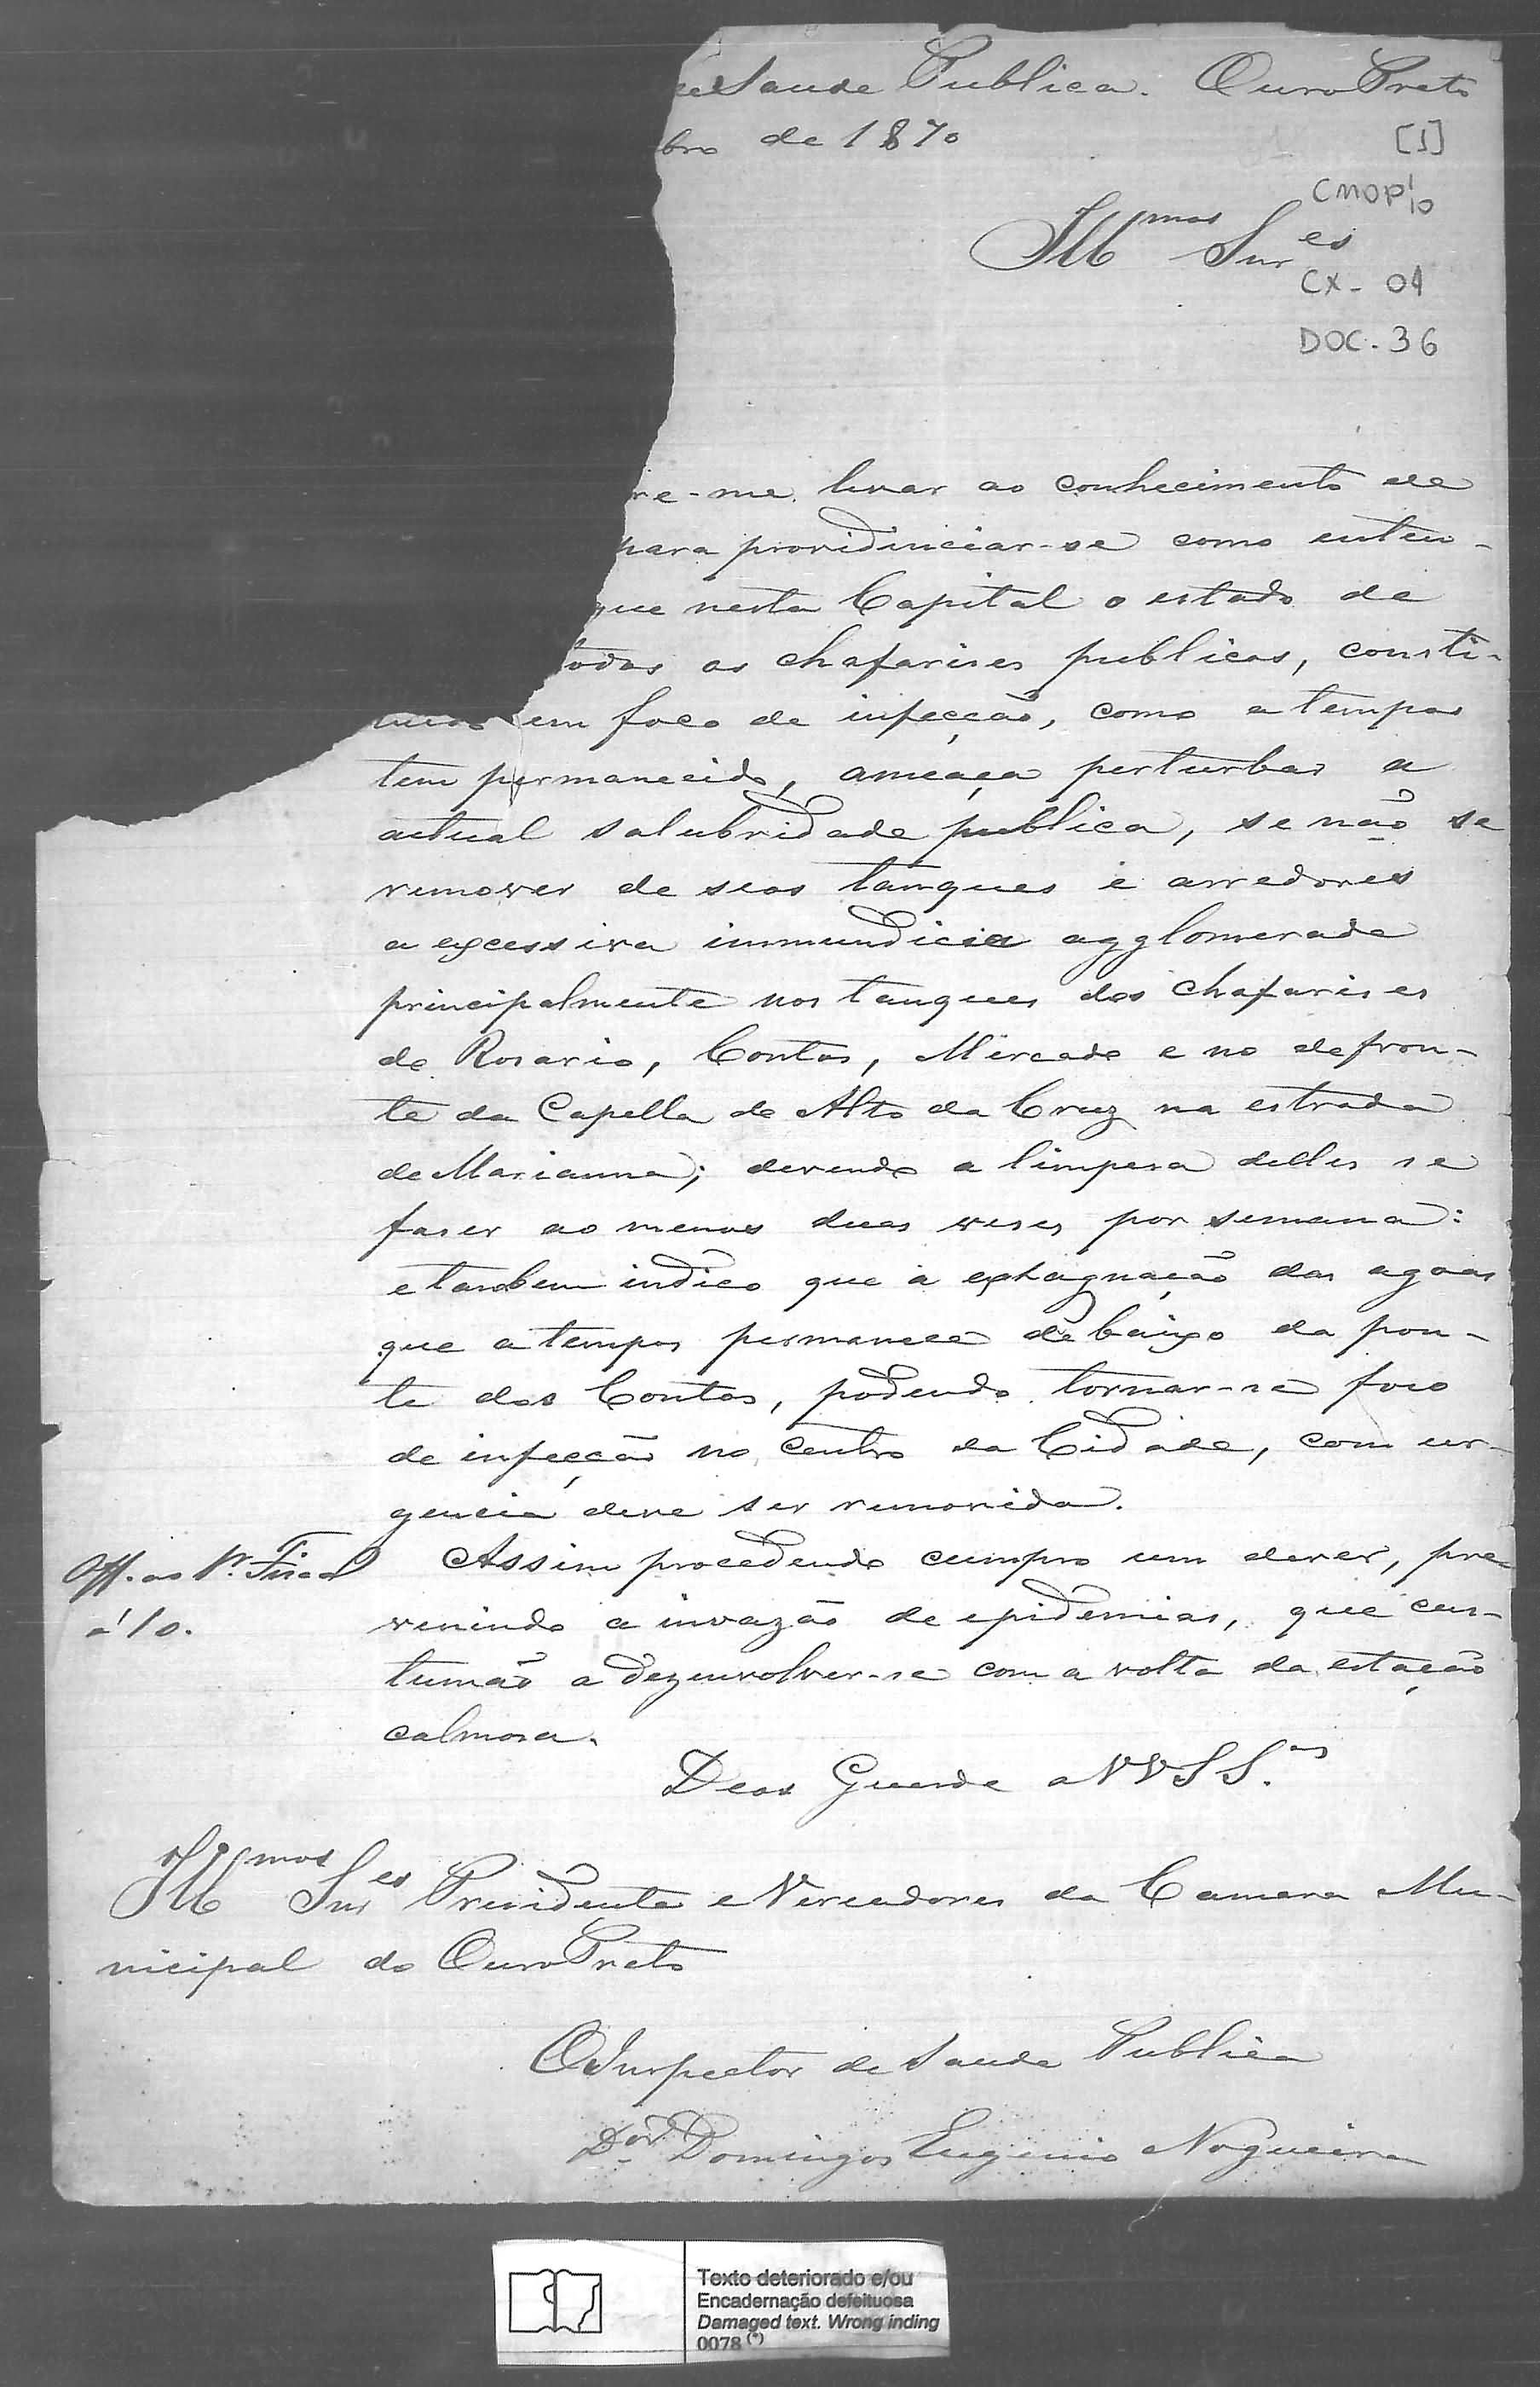 de Saude Publica. Ouro Preto
bro de 1870
[1]
CMOP 1/10
Illmos Snres
CX - 04
DOC. 36
re-me levar ao conhecimento de
para providinciar-se como enten-
que nesta Capital o estado de
todos os chafarises publicos, consti-
em foco de infecção, como a tempos
tem permanecido, ameaça perturbar a
actual salubridade publica, se não se
remover de seos tanques e arredores
a excessiva immundicia agglomerada
principalmente nos tanques dos chafarises
do Rosario, Contos, Mercado e no defron-
te da Capella do Alto da Cruz na estrada
de Marianna; devendo a limpesa delles se
faser ao menos duas veses por semana:
e tambem indico que a extagnação das agoas
que a tempos permanece debaixo da pon-
te dos Contos, podendo tornar-se foco
de infecção no centro da Cidade, com ur-
gencia deve ser removida.
Assim procedendo cumpro um dever, pre-
venindo a invazão de epidemias, que cus-
tumão a dezenvolver-se com a volta da estação
calmosa.
Off. ao Pr. Fiscal
a 10.
Deos Guarde a VVSS.as
Illmos Snres Presidente e Vereadores da Camara Mu-
nicipal do Ouro Preto
O Inspector de Saude Publica
Dor Domingos Eugenio Nogueira
Texto deteriorado e/ou
Encadernação defeituosa
Damaged text. Wrong inding
0078 (*)